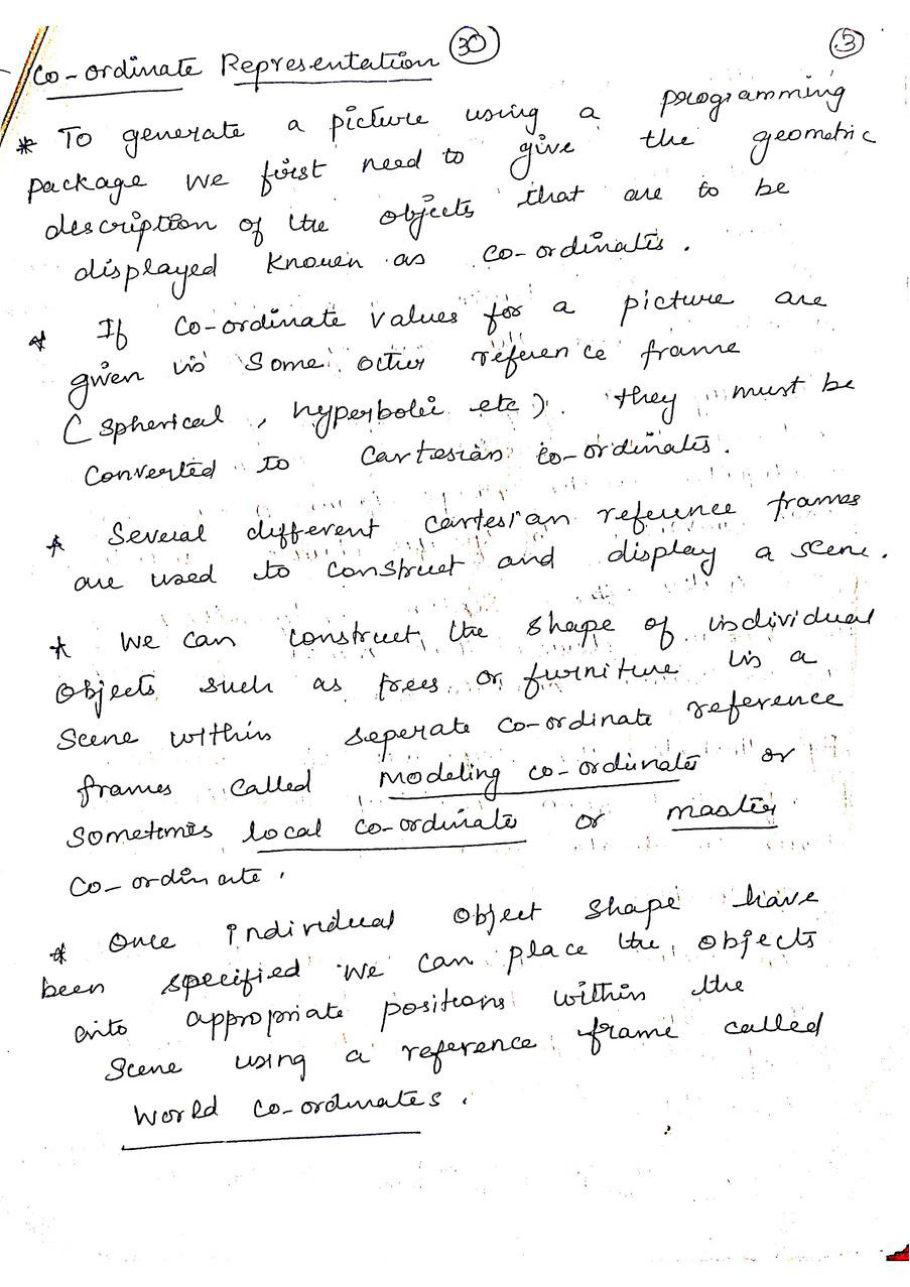 Co-ordinate Representation 30 3
* To generate a picture using a programming
package we first need to give the geometric
description of the objects that are to be
displayed known as co-ordinates.
* If co-ordinate values for a picture are
given in some other reference frame
(spherical, hyperbolic etc). they must be
converted to cartesian co-ordinates.
* Several different cartesian reference frames
are used to construct and display a scene.
* We can construct the shape of individual
objects such as trees or furniture in a
scene within seperate co-ordinate reference
frames called modeling co-ordinates or
sometimes local co-ordinates or master
co-ordinate.
* Once individual object shape have
been specified we can place the objects
into appropriate positions within the
scene using a reference frame called
world co-ordinates.